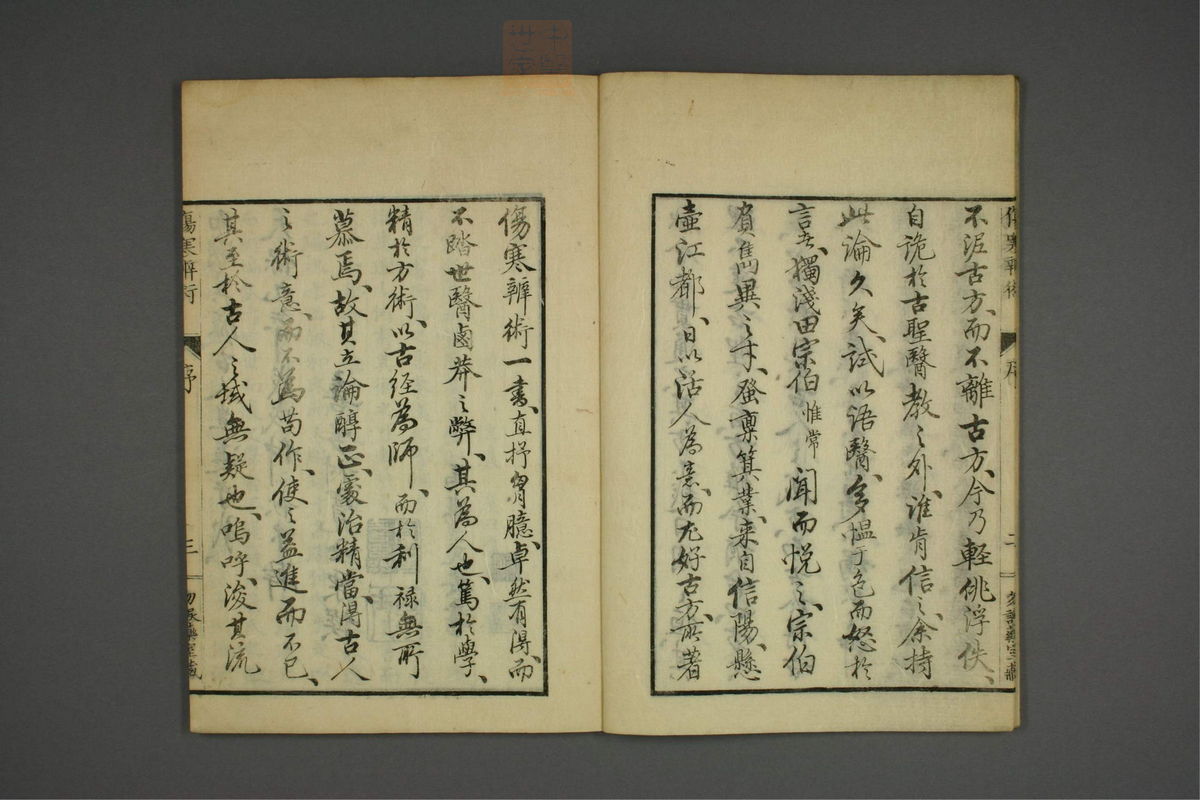 不泥古方、而不離古方、今乃輕佻浮佚、
自詭於古聖醫教之外、誰肯信之、余持
此論久矣、試以语醫、多愠于色而怒於
言者、獨淺田宗伯惟常聞而悦之、宗伯
負雋異之才、發稟箕業、来自信陽、懸
壷江都、日以活人為意、而尤好古方、所著
傷寒辨術
序
二
傷寒辨術一書、直抒胷臆、卓然有得、而
不踏世醫鹵莽之弊、其為人也、篤於學、
精於方術、以古经為師、而於利禄無所
慕焉、故其立論醇正、處治精當、得古人
之術意、而不為苟作、使之益進而不已、
其至於古人之域無疑也、嗚呼、浚其流
傷寒辨術
序
三
勿誤藥室蔵